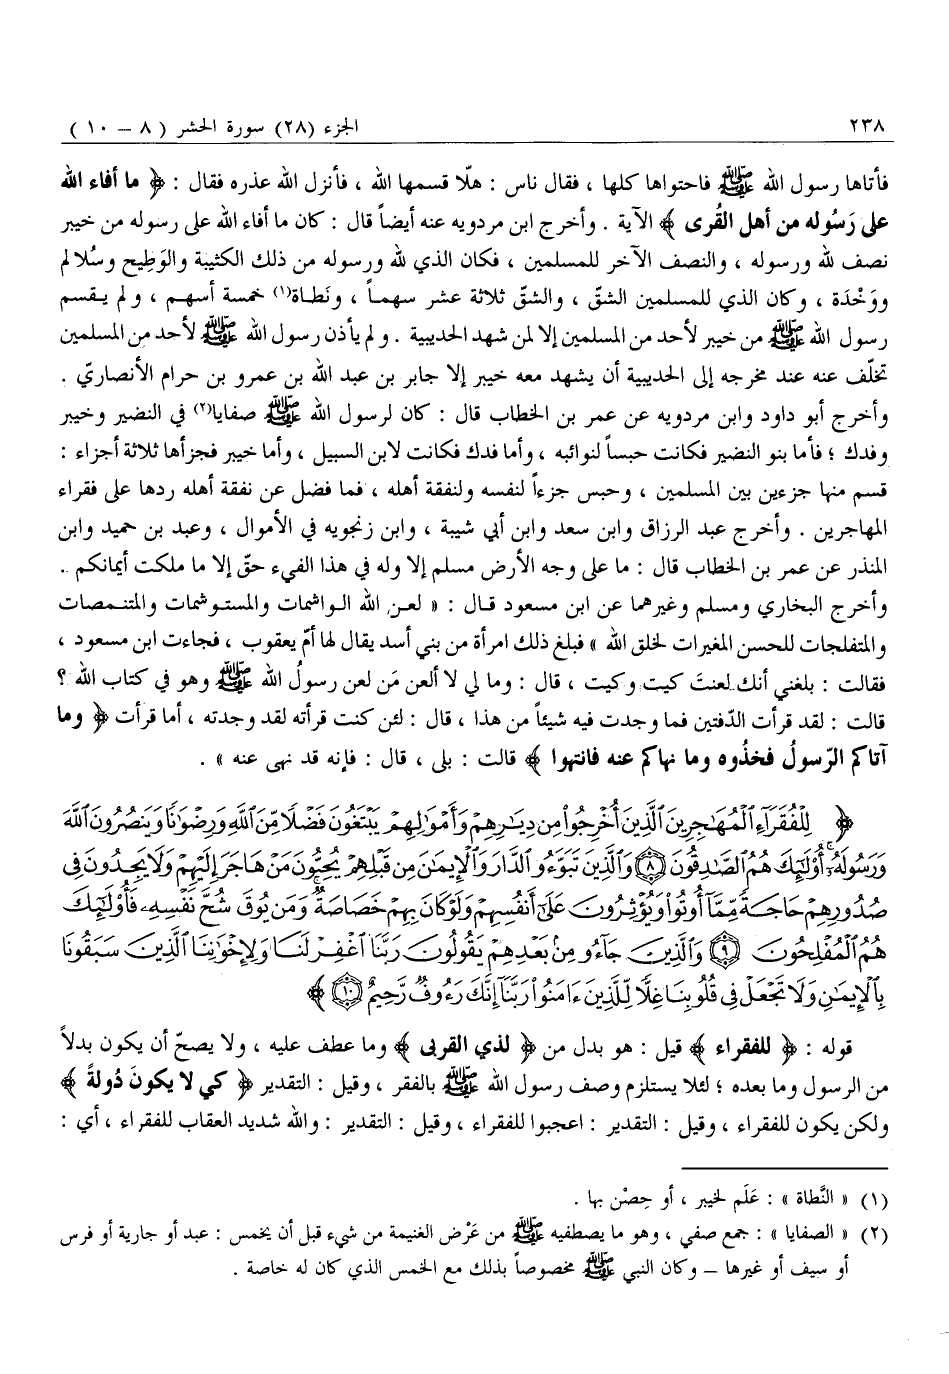 ٢٣٨ الجزء (٢٨) سورة الحشر ( ٨ – ١٠ )
فأتاها رسول الله ﷺ فاحتواها كلها ، فقال ناس : هلّا قسمها الله ، فأنزل الله عذره فقال : ﴿ ما أفاء الله
على رَسُوله من أهل القُرى ﴾ الآية . وأخرج ابن مردويه عنه أيضاً قال : كان ما أفاء الله على رسوله من خيبر
نصف لله ورسوله ، والنصف الآخر للمسلمين ، فكان الذي لله ورسوله من ذلك الكثيبة والوَطِيح وسُلالم
ووَخْدَة ، وكان الذي للمسلمين الشقّ ، والشقّ ثلاثة عشر سهماً ، ونَطاة(١) خمسة أسهم ، ولم يقسم
رسول الله ﷺ من خيبر لأحد من المسلمين إلا لمن شهد الحديبية . ولم يأذن رسول الله ﷺ لأحد من المسلمين
تخلّف عنه عند مخرجه إلى الحديبية أن يشهد معه خيبر إلا جابر بن عبد الله بن عمرو بن حرام الأنصاريّ .
وأخرج أبو داود وابن مردويه عن عمر بن الخطاب قال : كان لرسول الله ﷺ صفايا(٢) في النضير وخيبر
وفدك ؛ فأما بنو النضير فكانت حبساً لنوائبه ، وأما فدك فكانت لابن السبيل ، وأما خيبر فجزأها ثلاثة أجزاء :
قسم منها جزءين بين المسلمين ، وحبس جزءاً لنفسه ولنفقة أهله ، فما فضل عن نفقة أهله ردها على فقراء
المهاجرين . وأخرج عبد الرزاق وابن سعد وابن أبي شيبة ، وابن زنجويه في الأموال ، وعبد بن حميد وابن
المنذر عن عمر بن الخطاب قال : ما على وجه الأرض مسلم إلا وله في هذا الفيء حقّ إلا ما ملكت أيمانكم .
وأخرج البخاري ومسلم وغيرهما عن ابن مسعود قال : « لعن الله الواشمات والمستوشمات والمتنمصات
والمتفلجات للحسن المغيرات لخلق الله » فبلغ ذلك امرأة من بني أسد يقال لها أمّ يعقوب ، فجاءت ابن مسعود ،
فقالت : بلغني أنك لعنتَ كيت وكيت ، قال : وما لي لا ألعن مَن لعن رسولُ الله ﷺ وهو في كتاب الله ؟
قالت : لقد قرأت الدّفتين فما وجدت فيه شيئاً من هذا ، قال : لئن كنت قرأته لقد وجدته ، أما قرأت ﴿ وما
آتاكم الرّسولُ فخذُوه وما نهاكم عنه فانتهوا ﴾ قالت : بلى ، قال : فإنه قد نهى عنه » .
﴿ لِلْفُقَرَآءِ ٱلْمُهَٰجِرِينَ ٱلَّذِينَ أُخْرِجُوا۟ مِن دِيَٰرِهِمْ وَأَمْوَٰلِهِمْ يَبْتَغُونَ فَضْلًا مِّنَ ٱللَّهِ وَرِضْوَٰنًا وَيَنصُرُونَ ٱللَّهَ
وَرَسُولَهُۥٓ أُو۟لَٰٓئِكَ هُمُ ٱلصَّٰدِقُونَ ٨ وَٱلَّذِينَ تَبَوَّءُو ٱلدَّارَ وَٱلْإِيمَٰنَ مِن قَبْلِهِمْ يُحِبُّونَ مَنْ هَاجَرَ إِلَيْهِمْ وَلَا يَجِدُونَ فِى
صُدُورِهِمْ حَاجَةً مِّمَّآ أُوتُوا۟ وَيُؤْثِرُونَ عَلَىٰٓ أَنفُسِهِمْ وَلَوْ كَانَ بِهِمْ خَصَاصَةٌ وَمَن يُوقَ شُحَّ نَفْسِهِۦ فَأُو۟لَٰٓئِكَ
هُمُ ٱلْمُفْلِحُونَ ٩ وَٱلَّذِينَ جَآءُو مِنۢ بَعْدِهِمْ يَقُولُونَ رَبَّنَا ٱغْفِرْ لَنَا وَلِإِخْوَٰنِنَا ٱلَّذِينَ سَبَقُونَا
بِٱلْإِيمَٰنِ وَلَا تَجْعَلْ فِى قُلُوبِنَا غِلًّا لِّلَّذِينَ ءَامَنُوا۟ رَبَّنَآ إِنَّكَ رَءُوفٌ رَّحِيمٌ ١٠ ﴾
قوله : ﴿ للفقراء ﴾ قيل : هو بدل من ﴿ لذي القربى ﴾ وما عطف عليه ، ولا يصحّ أن يكون بدلاً
من الرسول وما بعده ؛ لئلا يستلزم وصف رسول الله ﷺ بالفقر ، وقيل : التقدير ﴿ كي لا يكونَ دُولةً ﴾
ولكن يكون للفقراء ، وقيل : التقدير : اعجبوا للفقراء ، وقيل : التقدير : والله شديد العقاب للفقراء ، أي :
(١) « النَّطاة » : عَلَم لخيبر ، أو حِصْن بها .
(٢) « الصفايا » : جمع صفي ، وهو ما يصطفيه ﷺ من عَرْض الغنيمة من شيء قبل أن يخمس : عبد أو جارية أو فرس
أو سيف أو غيرها – وكان النبي ﷺ مخصوصاً بذلك مع الخمس الذي كان له خاصة .